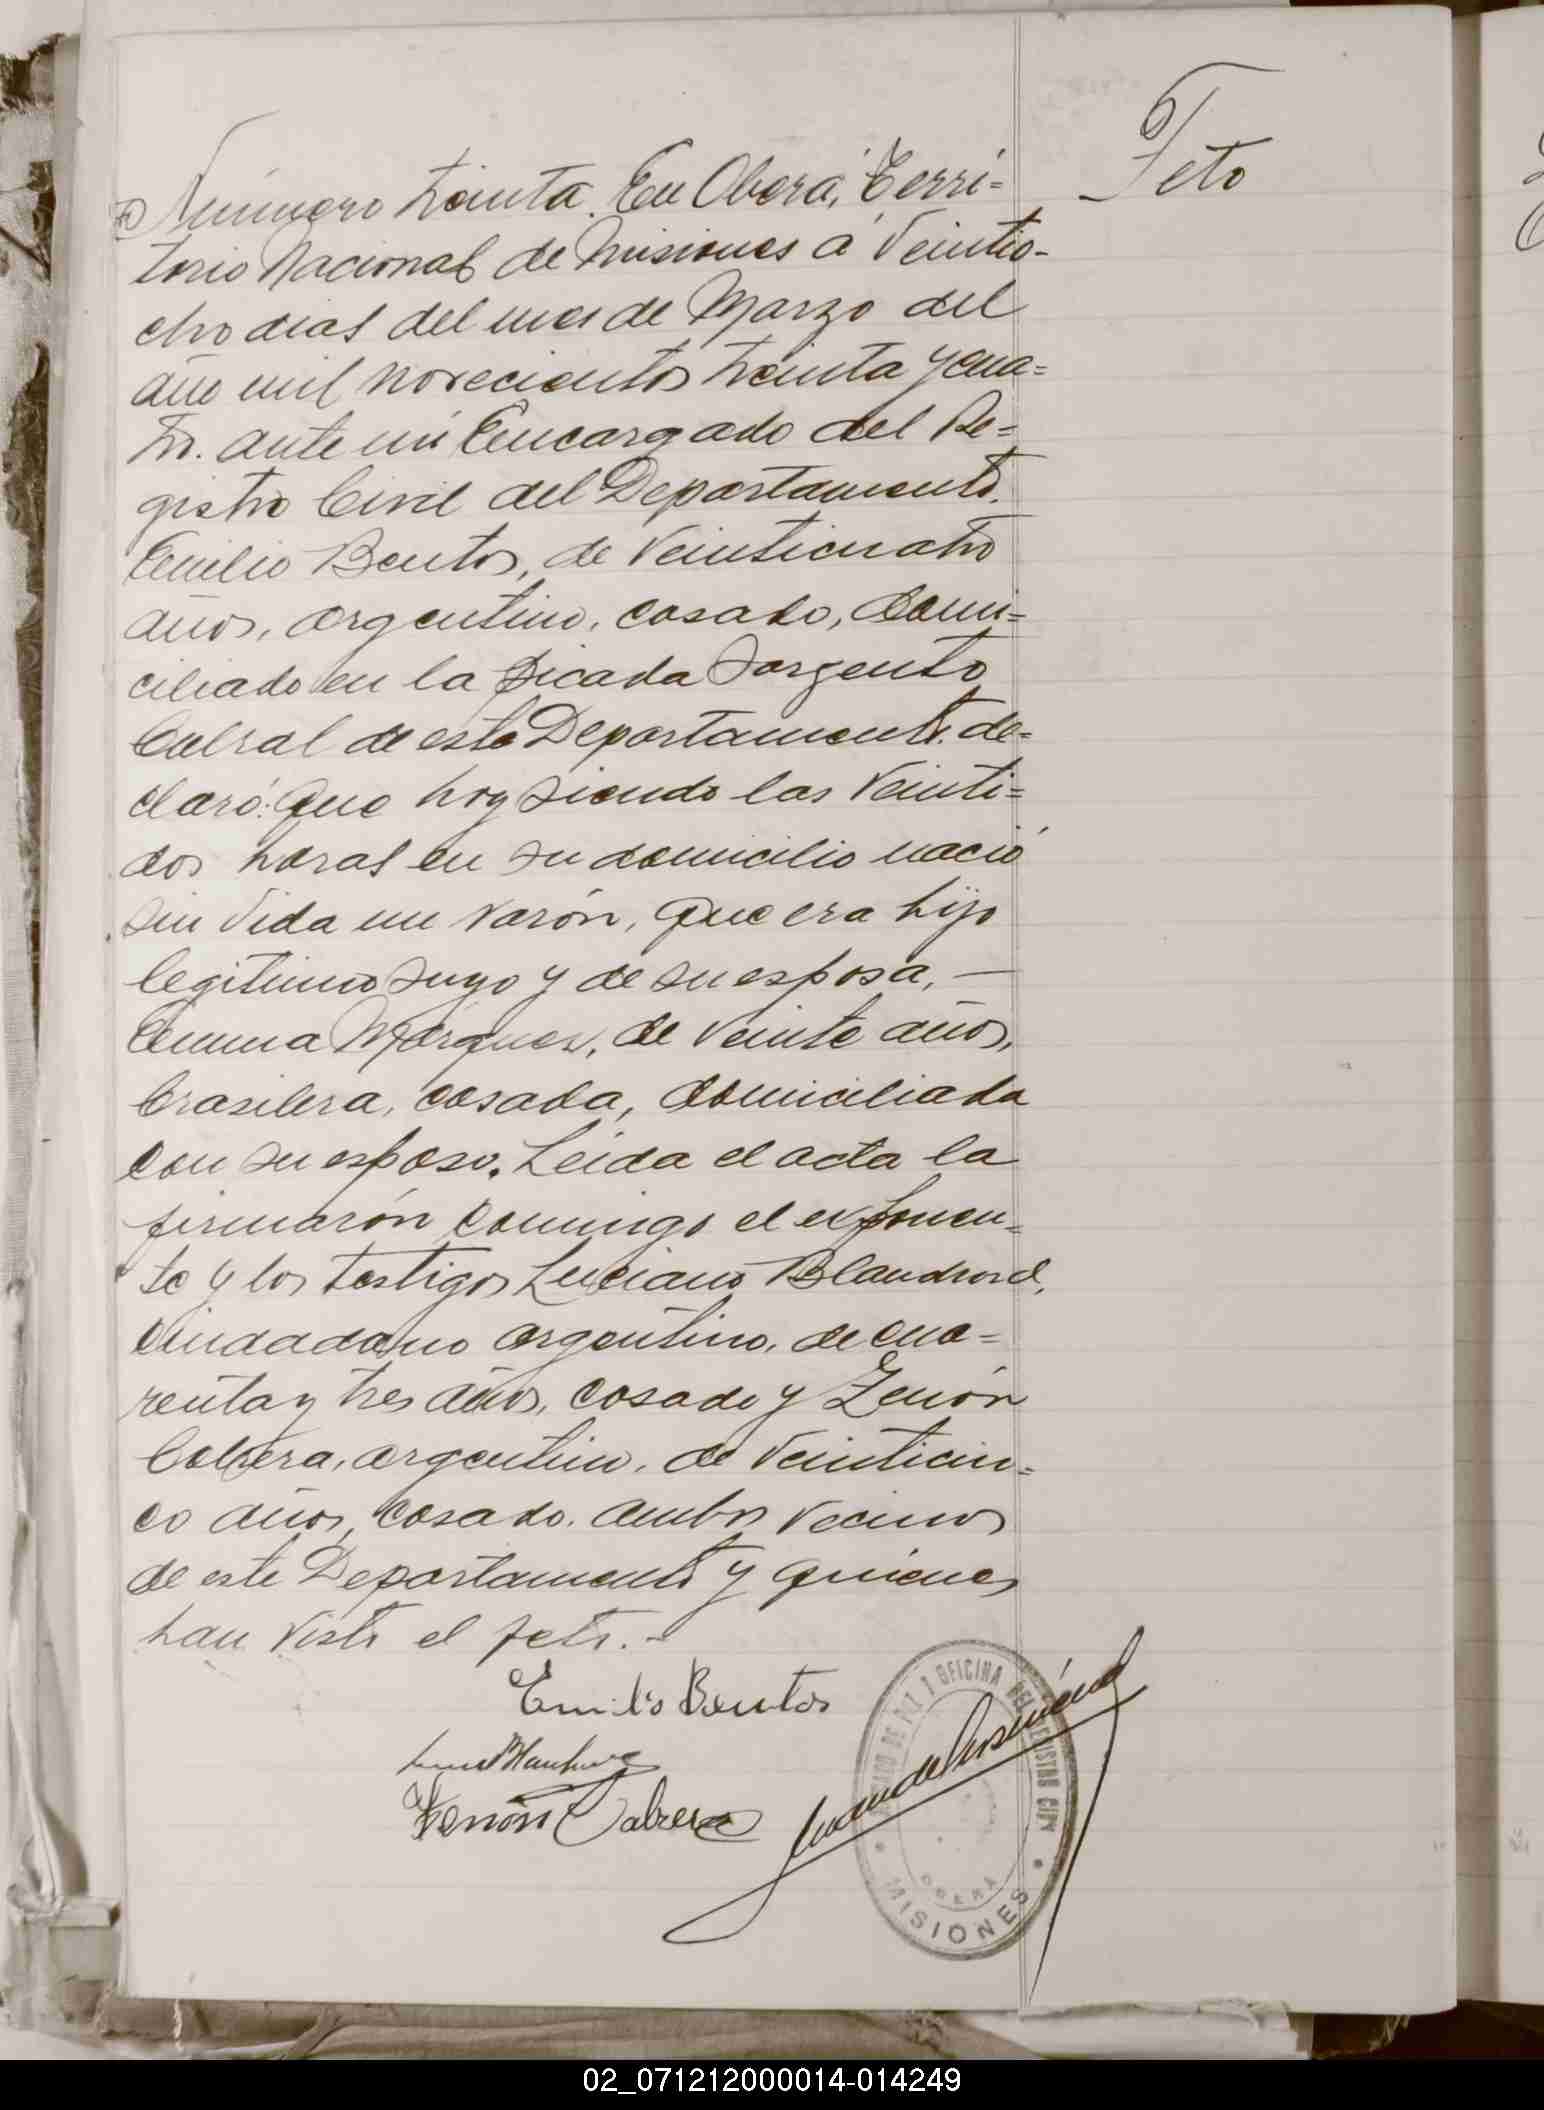 Feto
Número treinta. En Oberá, Terri=
torio Nacional de Misiones a Veintio-
cho dias del mes de Marzo del
año mil novecientos treinta y cua=
tro. ante mi Encargado del Re=
gistro Civil del Departamento.
Emilio Bentos, de veinticuatro
años, argentino, casado, domi=
ciliado en la picada Sargento
Cabral de este Departamento. de=
claró: Que hoy siendo las veinti=
dos horas en su domicilio nació
sin vida un varón, que era hijo
legitimo suyo y de su esposa, —
Emma Marques, de veinte años,
brasilera, casada, domiciliada
con su esposo. Leida el acta la
firmarón conmigo el exponen=
te y los testigos Luciano
ciudadano argentino, de cua=
renta y tres años, casado y Zenón
Cabrera, argentino, de veinticin=
co años, casado. ambos vecinos
de este Departamento y quienes
han visto el feto.-
Emilio Bentos
Zenón Cabrera
OFICINA DEL REGISTRO CIVIL
OBERÁ
MISIONES
02_071212000014-014249